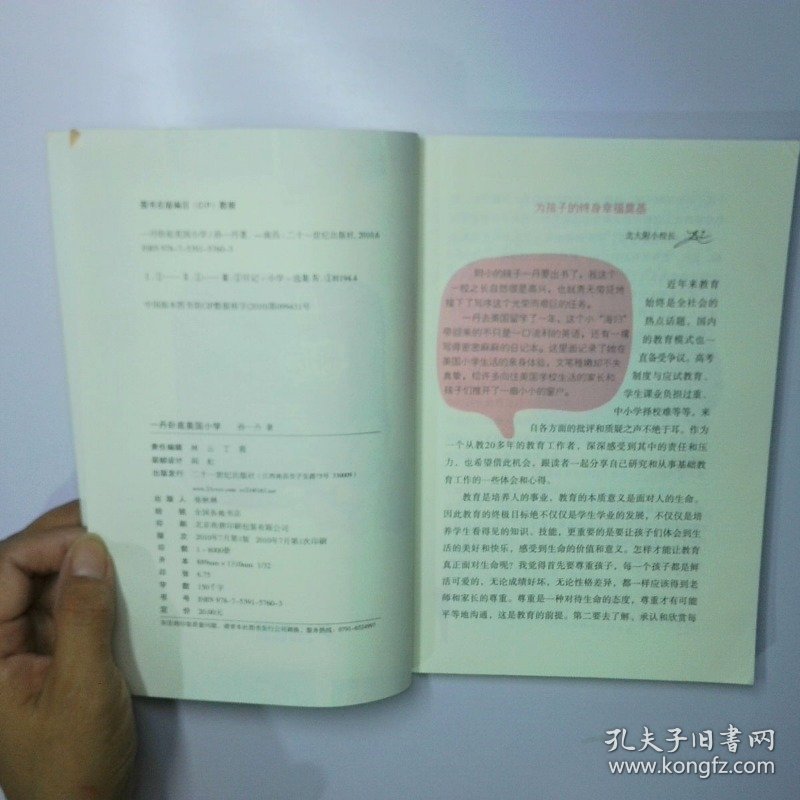 图书在版编目（CIP）数据
一丹卧底美国小学/孙一丹著. —南昌：二十一世纪出版社, 2010.6
ISBN 978-7-5391-5760-3
中国版本图书馆CIP数据核字(2010)第099431号
一丹卧底美国小学 孙一丹 著
责任编辑
装帧设计
出版发行 二十一世纪出版社
出版人 张秋林
经销 全国各地书店
印刷
版次 2010年7月第1版 2010年7月第1次印刷
印数 1-8000册
开本 889mm×1210mm 1/32
印张 6.75
字数 150千字
书号 ISBN 978-7-5391-5760-3
定价 20.00元
为孩子的终身幸福奠基
北大附小校长
附小的孩子一丹要出书了，我这个
一校之长自然很是高兴，也就责无旁贷地
接下了写序这个光荣而艰巨的任务。
一丹去美国留学了一年，这个小“海归”
带回来的不只是一口流利的英语，还有一摞
写得密密麻麻的日记本。这里面记录了她在
美国小学生活的亲身体验，文笔稚嫩却不失
真挚，给许多向往美国学校生活的家长和
孩子们推开了一扇小小的窗户。
近年来教育
始终是全社会的
热点话题，国内
的教育模式也一
直备受争议。高考
制度与应试教育、
学生课业负担过重、
中小学择校难等等，来
自各方面的批评和质疑之声不绝于耳。作为
一个从教20多年的教育工作者，深深感受到其中的责任和压
力，也希望借此机会，跟读者一起分享自己研究和从事基础教
育工作的一些体会和心得。
教育是培养人的事业，教育的本质意义是面对人的生命。
因此教育的终极目标绝不仅仅是学生学业的发展，不仅仅是培
养学生看得见的知识、技能，更重要的是要让孩子们体会到生
活的美好和快乐，感受到生命的价值和意义。怎样才能让教育
真正面对生命呢？我觉得首先要尊重孩子，每一个孩子都是鲜
活可爱的，无论成绩好坏，无论性格差异，都一样应该得到老
师和家长的尊重。尊重是一种对待生命的态度，尊重才有可能
平等地沟通，这是教育的前提。第二要去了解、承认和欣赏每
孔夫子旧书网
www.kongfz.com